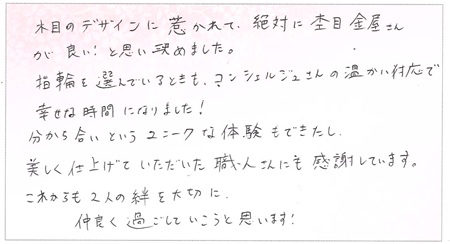 木目のデザインに惹かれて、絶対に杢目金屋さん
が良い!と思い決めました。
指輪を選んでいるときも、コンシェルジュさんの温かい対応で
幸せな時間になりました!
分かち合いというユニークな体験もできたし、
美しく仕上げていただいた職人さんにも感謝しています。
これからも2人の絆を大切に、
仲良く過ごしていこうと思います!